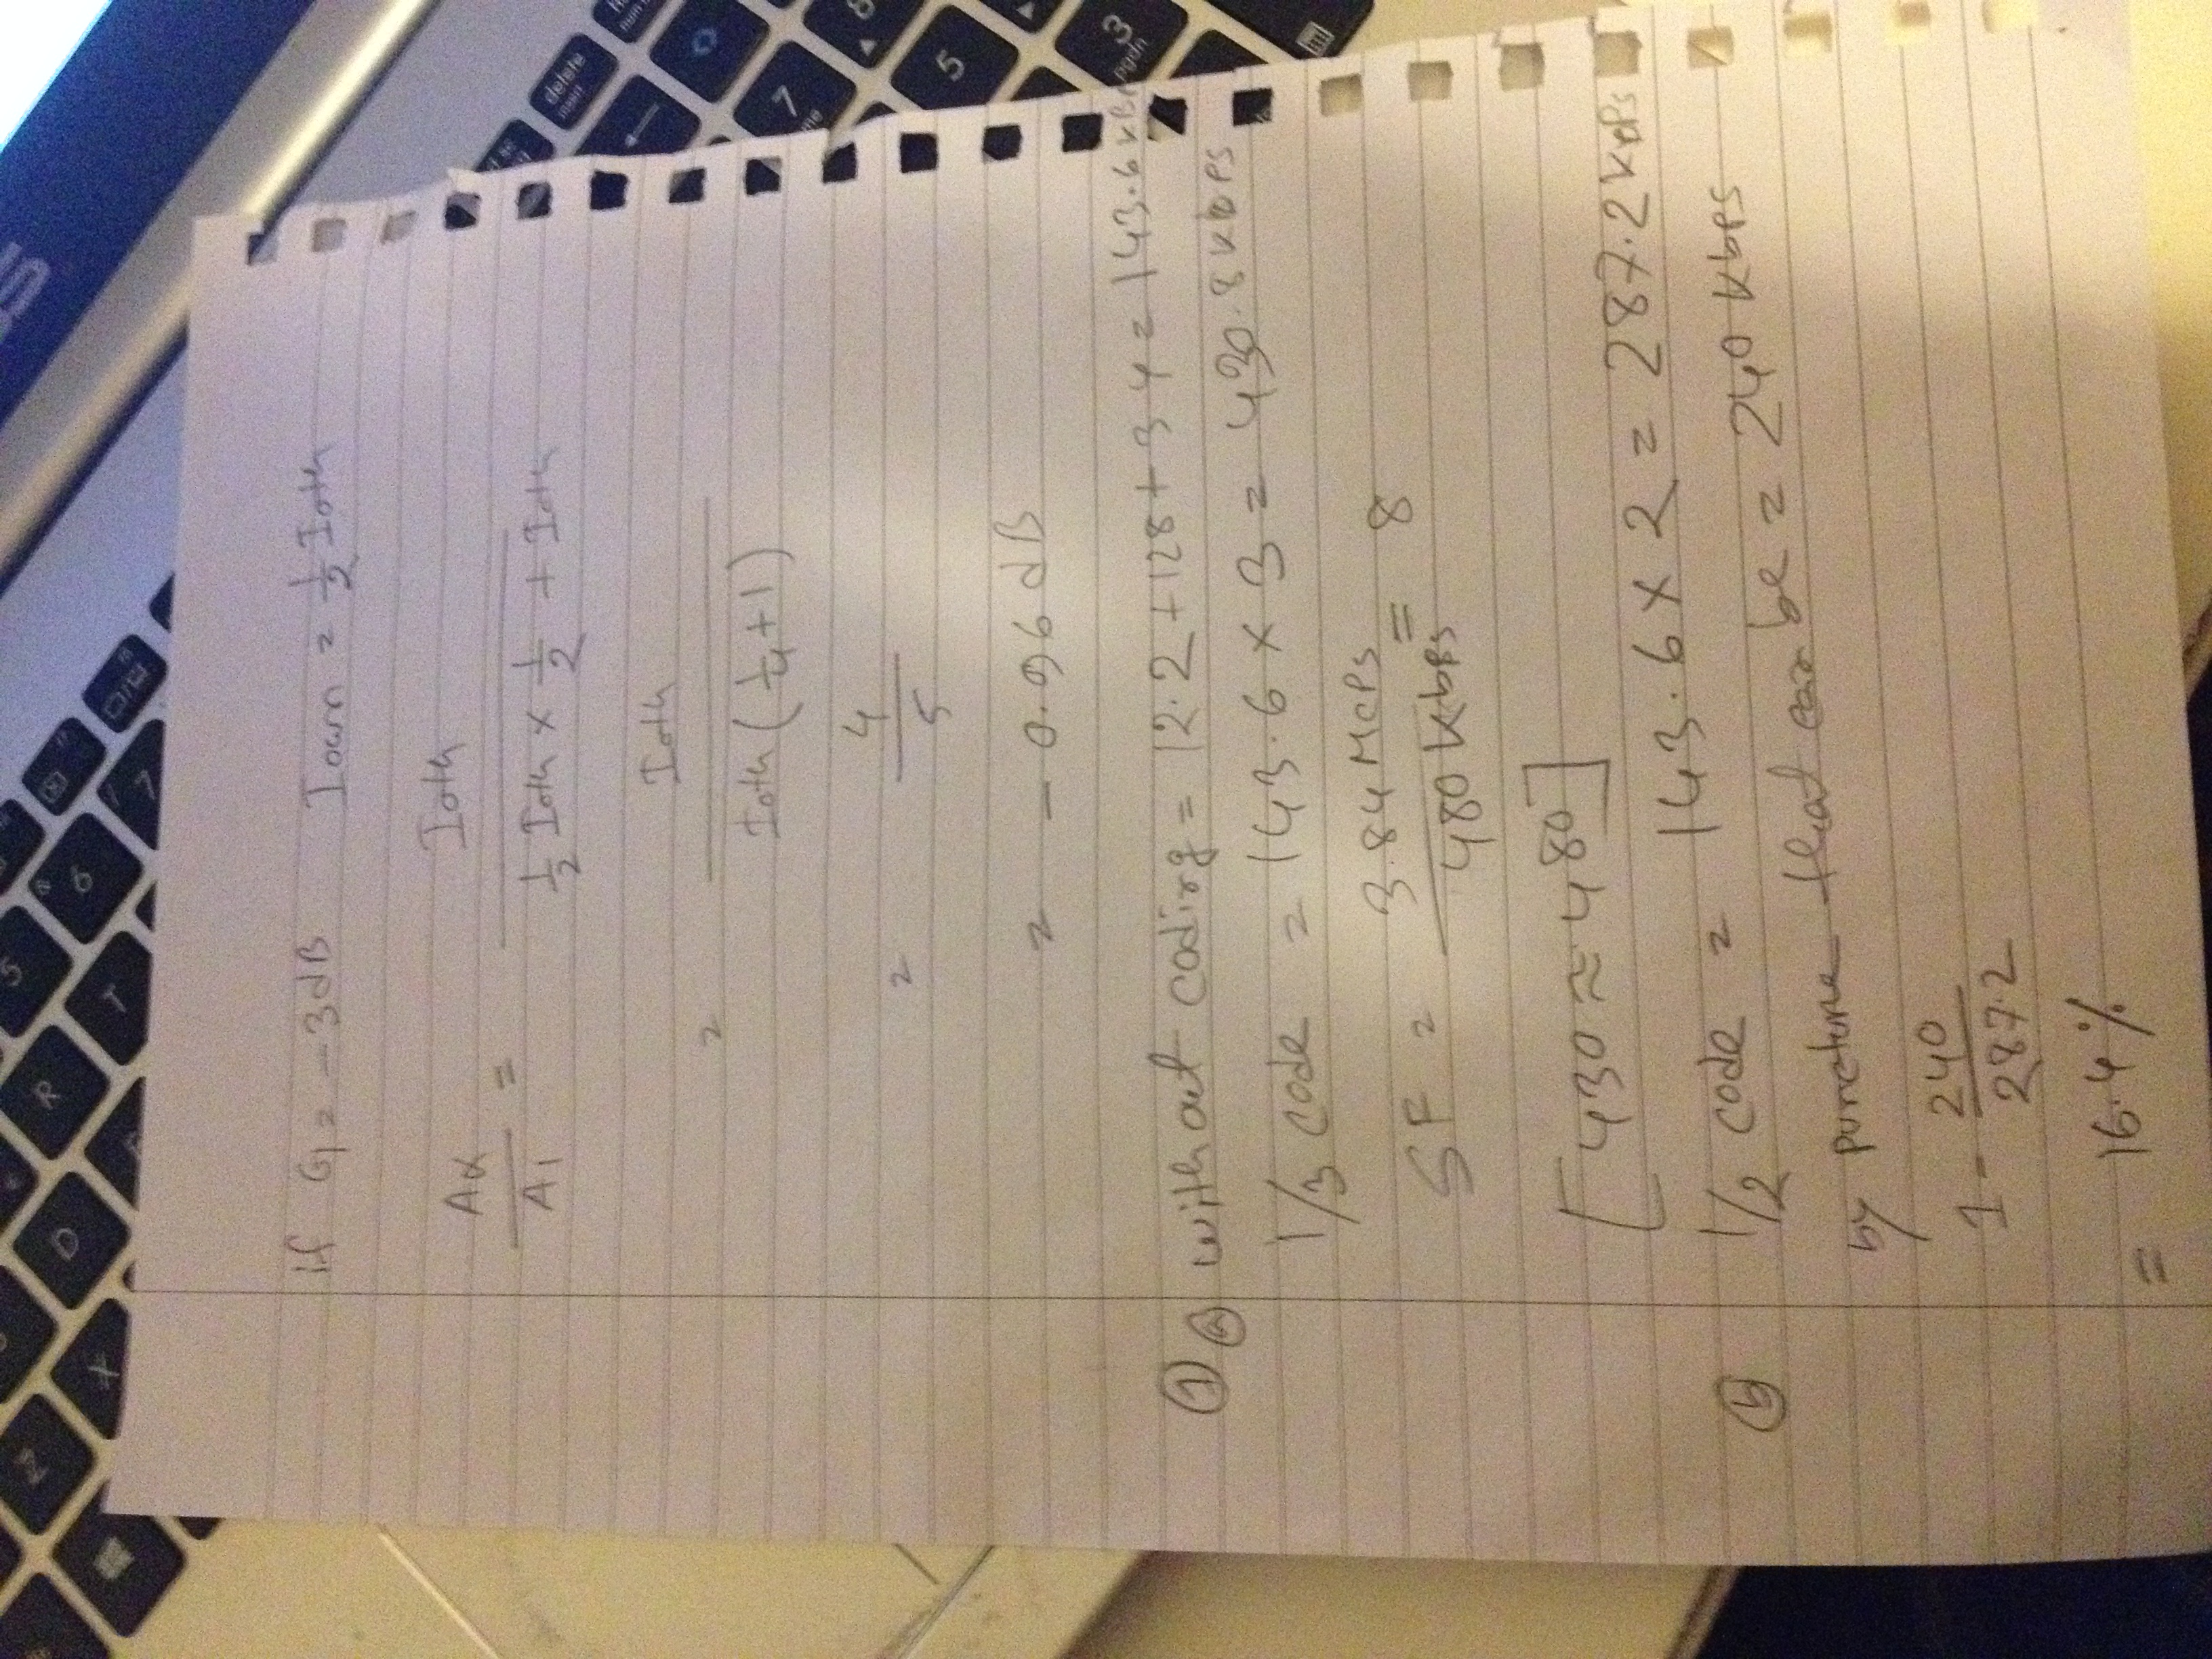 if G1 = -3dB Iown = 1/2 Ioth
Aα / A1 = Ioth / (1/2 Ioth × 1/2 + Ioth)
= Ioth / Ioth (1/4 + 1)
= 4/5
= - 0.96 dB
① ⓐ without coding = 12.2 + 128 + 3.4 = 143.6 kBp
1/3 code = 143.6 × 3 = 430.8 kbps
SF = 3.84 Mcps / 480 kbps = 8
[430 ≈ 480]
ⓑ 1/2 code = 143.6 × 2 = 287.2 kbps
by puncture that can be = 240 kbps
1 - 240 / 287.2
= 16.4 %
Z
D
R
5
6
X
T
7
delete
7
8
5
3
pgdn